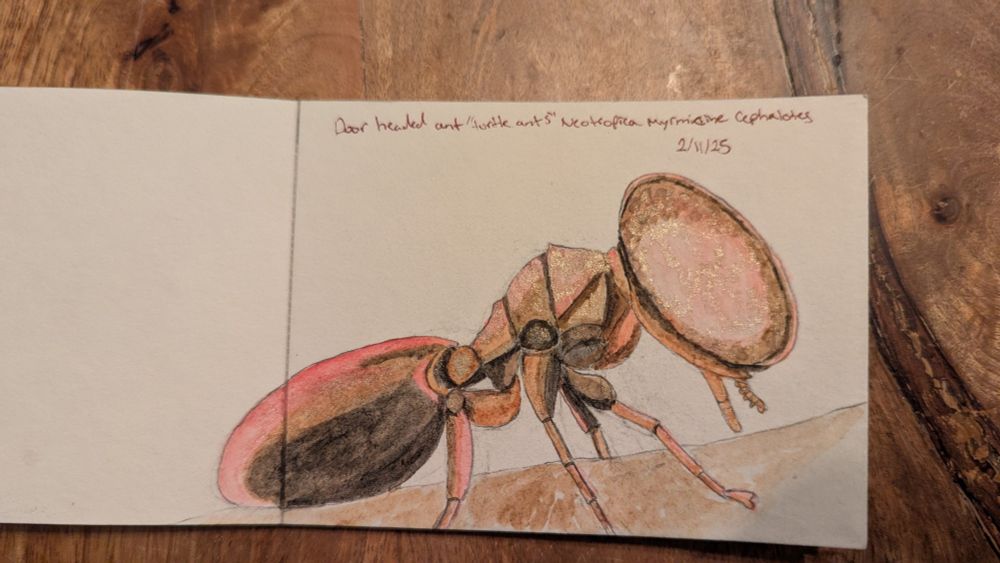 Door headed ant "turtle ants" Neotropica Myrmicine Cephalotes
2/11/25